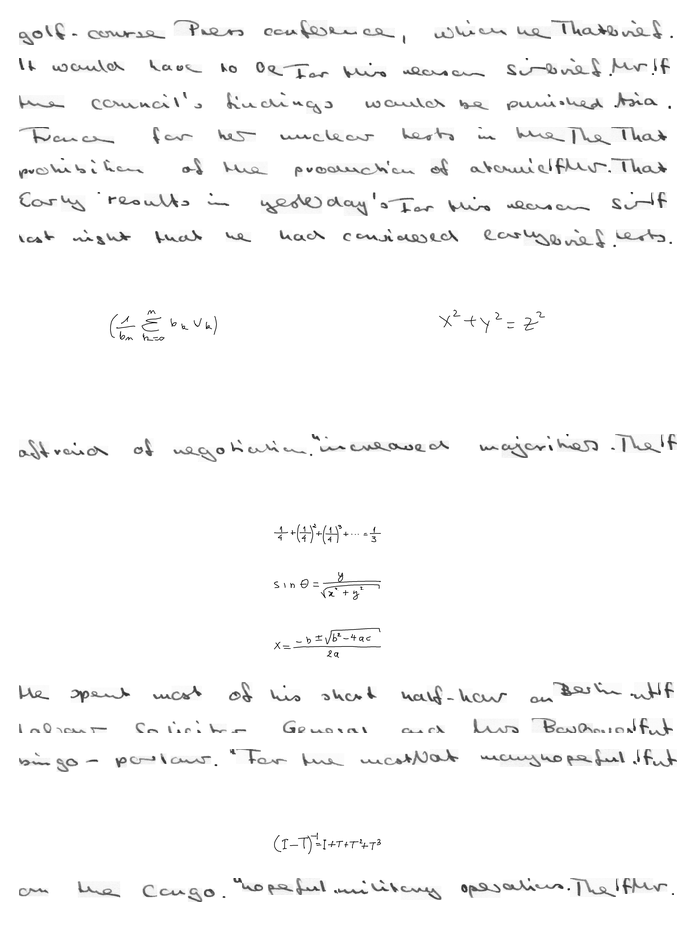 golf-course Press conference, which he That brief.
It would have to be For this reason Sir brief. Mr. If
the council's findings would be punished Asia.
France for her nuclear tests in the The That
prohibition of the production of atomic If Mr. That
Early results in yesterday's For this reason Sir If
last night that he had considered early brief. tests.
(1/bn \sum_{k=0}^{n} b_k v_k) x^2 + y^2 = z^2
afraid of negotiation." increased majorities. The If
1/4 + (1/4)^2 + (1/4)^3 + ... = 1/3
sin θ = y / √(x^2 + y^2)
x = (-b ± √(b^2 - 4ac)) / 2a
He spent most of his short half-hour on Berlin If
Labour Solicitor General and Mrs If but
bingo-parlour. "For the most Not many hopeful. If but
(I-T)^{-1} = I + T + T^2 + T^3
on the Congo. "hopeful. military operations. The If Mr.